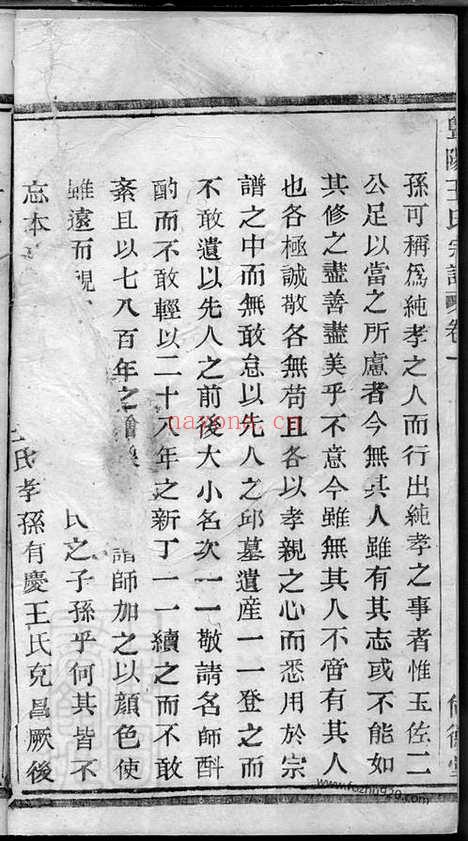 暨陽王氏宗譜 卷一
孫可稱爲純孝之人而行出純孝之事者惟玉佐二
公足以當之所慮者今無其人雖有其志或不能如
其修之盡善盡美乎不意今雖無其人不啻有其人
也各極誠敬各無苟且各以孝親之心而悉用於宗
譜之中而無敢怠以先人之邱墓遺産一一登之而
不敢遺以先人之前後大小名次一一敬請名師斟
酌而不敢輕以二十八年之新丁一一續之而不敢
紊且以七八百年之 師加之以顔色使
雖遠而視 氏之子孫乎何其皆不
忘本 氏孝孫有慶王氏克昌厥後
德堂
nayona.cn
www.fozhu920.com